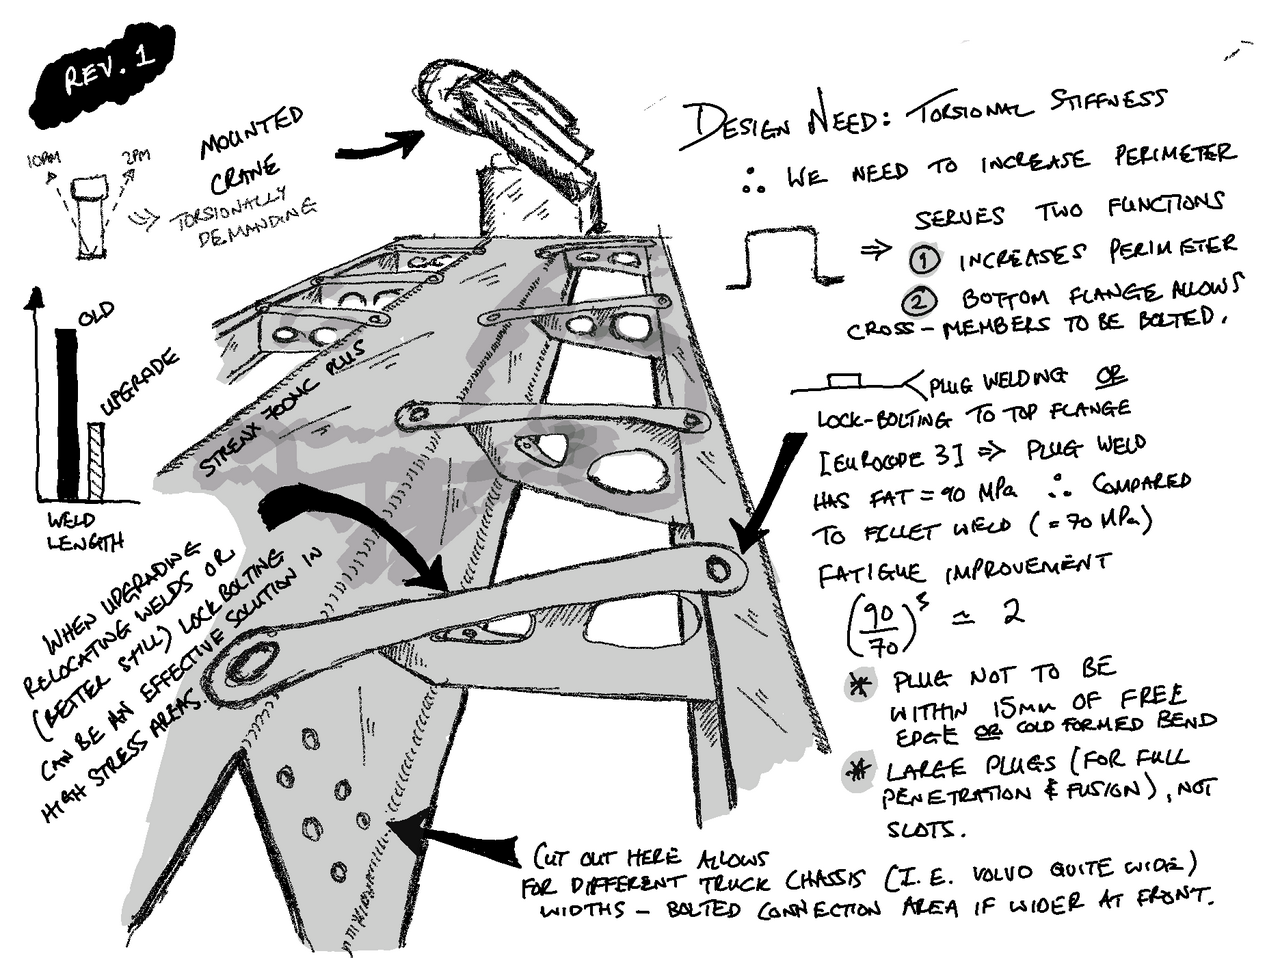 REV. 1
10PM
2PM
MOUNTED
CRANE
TORSIONALLY
DEMANDING
OLD
UPGRADE
WELD
LENGTH
STRENX 700MC PLUS
WHEN UPGRADING
RELOCATING WELDS OR
(BETTER STILL) LOCK BOLTING
CAN BE AN EFFECTIVE SOLUTION IN
HIGH STRESS AREAS.
DESIGN NEED: TORSIONAL STIFFNESS
∴ WE NEED TO INCREASE PERIMETER
⇒ SERVES TWO FUNCTIONS
① INCREASES PERIMETER
② BOTTOM FLANGE ALLOWS
CROSS-MEMBERS TO BE BOLTED.
PLUG WELDING OR
LOCK-BOLTING TO TOP FLANGE
[EUROCODE 3] ⇒ PLUG WELD
HAS FAT = 90 MPa ∴ COMPARED
TO FILLET WELD (= 70 MPa)
FATIGUE IMPROVEMENT
(90/70)³ ≃ 2
* PLUG NOT TO BE
WITHIN 15mm OF FREE
EDGE OR COLD FORMED BEND
* LARGE PLUGS (FOR FULL
PENETRATION & FUSION), NOT
SLOTS.
CUT OUT HERE ALLOWS
FOR DIFFERENT TRUCK CHASSIS (I.E. VOLVO QUITE WIDE)
WIDTHS - BOLTED CONNECTION AREA IF WIDER AT FRONT.